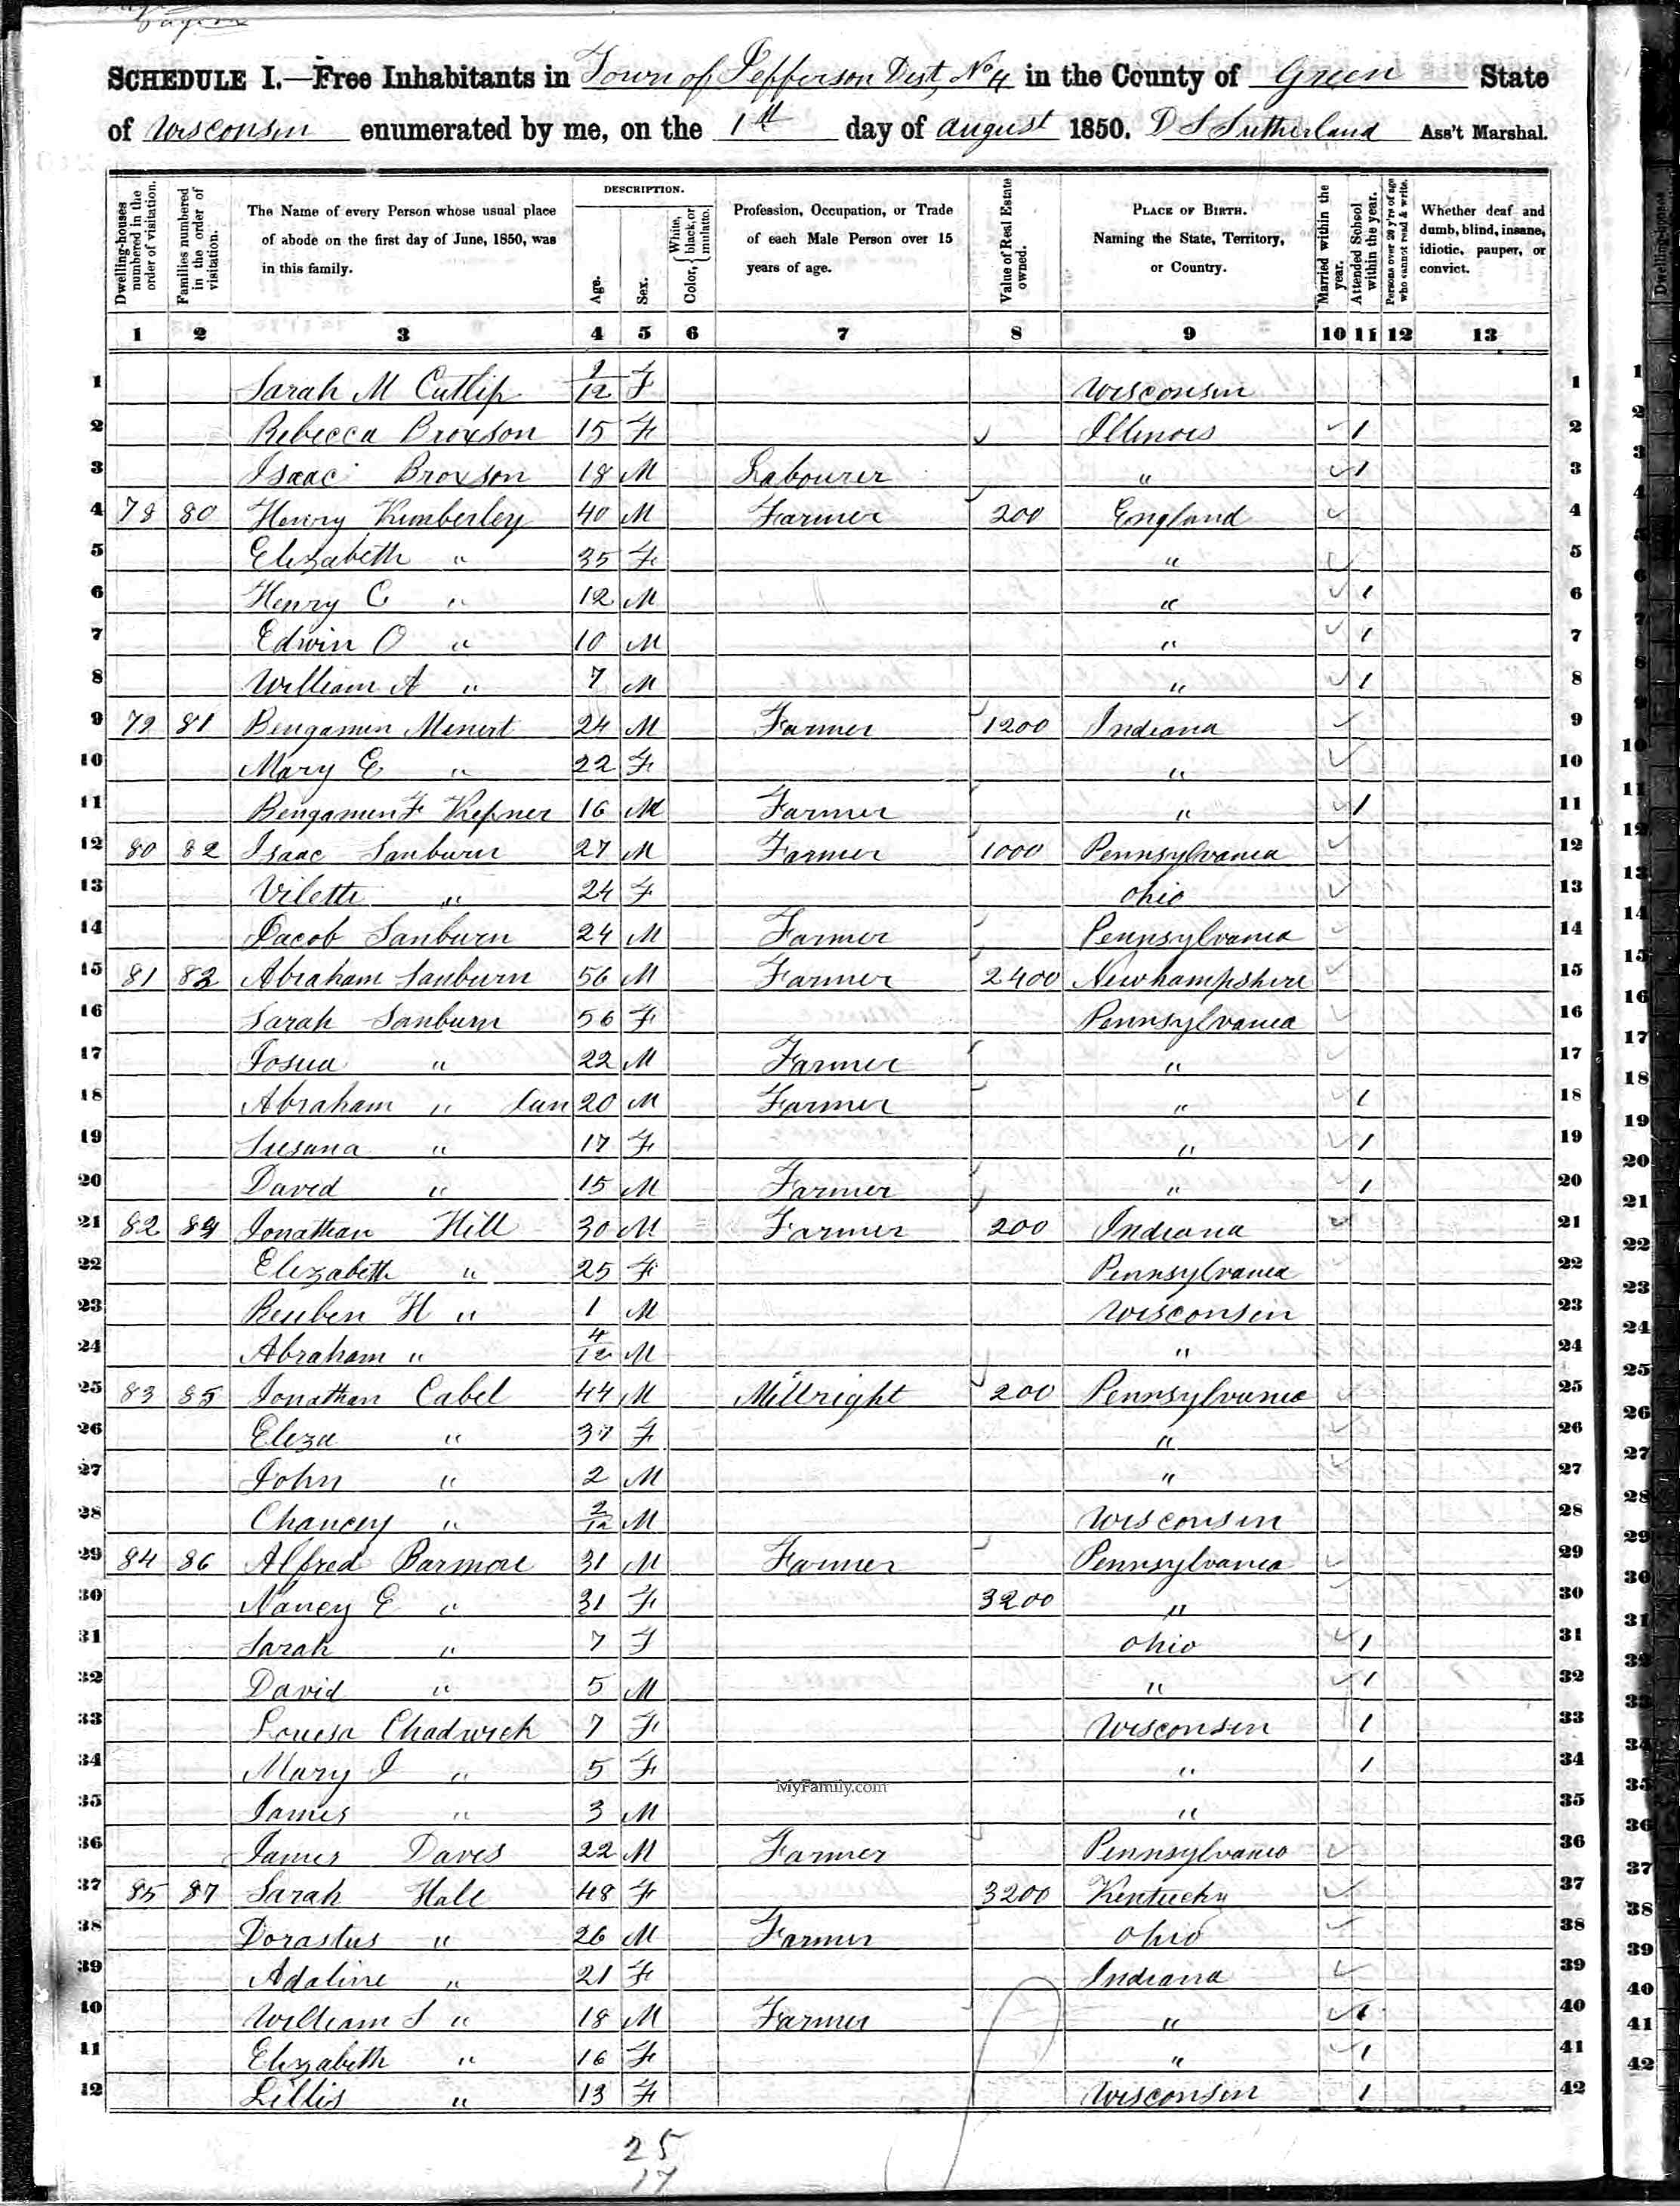 SCHEDULE I.—Free Inhabitants in Town of Jefferson Dist, No 4 in the County of Green State
of Wisconsin enumerated by me, on the 1st day of august 1850. D S Sutherland Ass't Marshal.
Dwelling-houses numbered in the order of visitation.
Families numbered in the order of visitation.
The Name of every Person whose usual place of abode on the first day of June, 1850, was in this family.
DESCRIPTION.
Age.
Sex.
Color, { White, black, or mulatto.
Profession, Occupation, or Trade of each Male Person over 15 years of age.
Value of Real Estate owned.
PLACE OF BIRTH. Naming the State, Territory, or Country.
Married within the year.
Attended School within the year.
Persons over 20 y'rs of age who cannot read & write.
Whether deaf and dumb, blind, insane, idiotic, pauper, or convict.
1 2 3 4 5 6 7 8 9 10 11 12 13
1 Sarah M Cutlip 9/12 F Wisconsin 1
2 Rebecca Broxson 15 F Illinois 1 2
3 Isaac Broxson 18 M Labourer " 1 3
4 78 80 Henry Kimberley 40 M Farmer 200 England 4
5 Elizabeth " 35 F " 5
6 Henry C " 12 M " 1 6
7 Edwin O " 10 M " 1 7
8 William A " 7 M " 1 8
9 79 81 Bengamin Menert 24 M Farmer 1200 Indiana 9
10 Mary E " 22 F " 10
11 Bengamin F Kepner 16 M Farmer " 1 11
12 80 82 Isaac Sanburn 27 M Farmer 1000 Pennsylvania 12
13 Vilette " 24 F Ohio 13
14 Jacob Sanburn 24 M Farmer Pennsylvania 14
15 81 83 Abraham Sanburn 56 M Farmer 2400 Newhampshire 15
16 Sarah Sanburn 56 F Pennsylvania 16
17 Josua " 22 M Farmer " 17
18 Abraham " Jun 20 M Farmer " 1 18
19 Susana " 17 F " 1 19
20 David " 15 M Farmer " 1 20
21 82 84 Jonathan Hill 30 M Farmer 200 Indiana 21
22 Elizabeth " 25 F Pennsylvania 22
23 Reuben H " 1 M Wisconsin 23
24 Abraham " 4/12 M " 24
25 83 85 Jonathan Cabel 44 M Millright 200 Pennsylvania 25
26 Eliza " 37 F " 26
27 John " 2 M " 27
28 Chancey " 2/12 M Wisconsin 28
29 84 86 Alfred Barmore 31 M Farmer Pennsylvania 29
30 Nancy E " 31 F 3200 " 30
31 Sarah " 7 F Ohio 1 31
32 David " 5 M " 1 32
33 Louesa Chadwick 7 F Wisconsin 1 33
34 Mary J " 5 F " 1 34
MyFamily.com
35 James " 3 M " 35
36 James Daves 22 M Farmer Pennsylvania 36
37 85 87 Sarah Hale 48 F 3200 Kentucky 37
38 Dorastus " 26 M Farmer Ohio 38
39 Adaline " 21 F Indiana 39
10 William S " 18 M Farmer " 1 40
11 Elizabeth " 16 F " 1 41
12 Lillis " 13 F Wisconsin 1 42
25
17